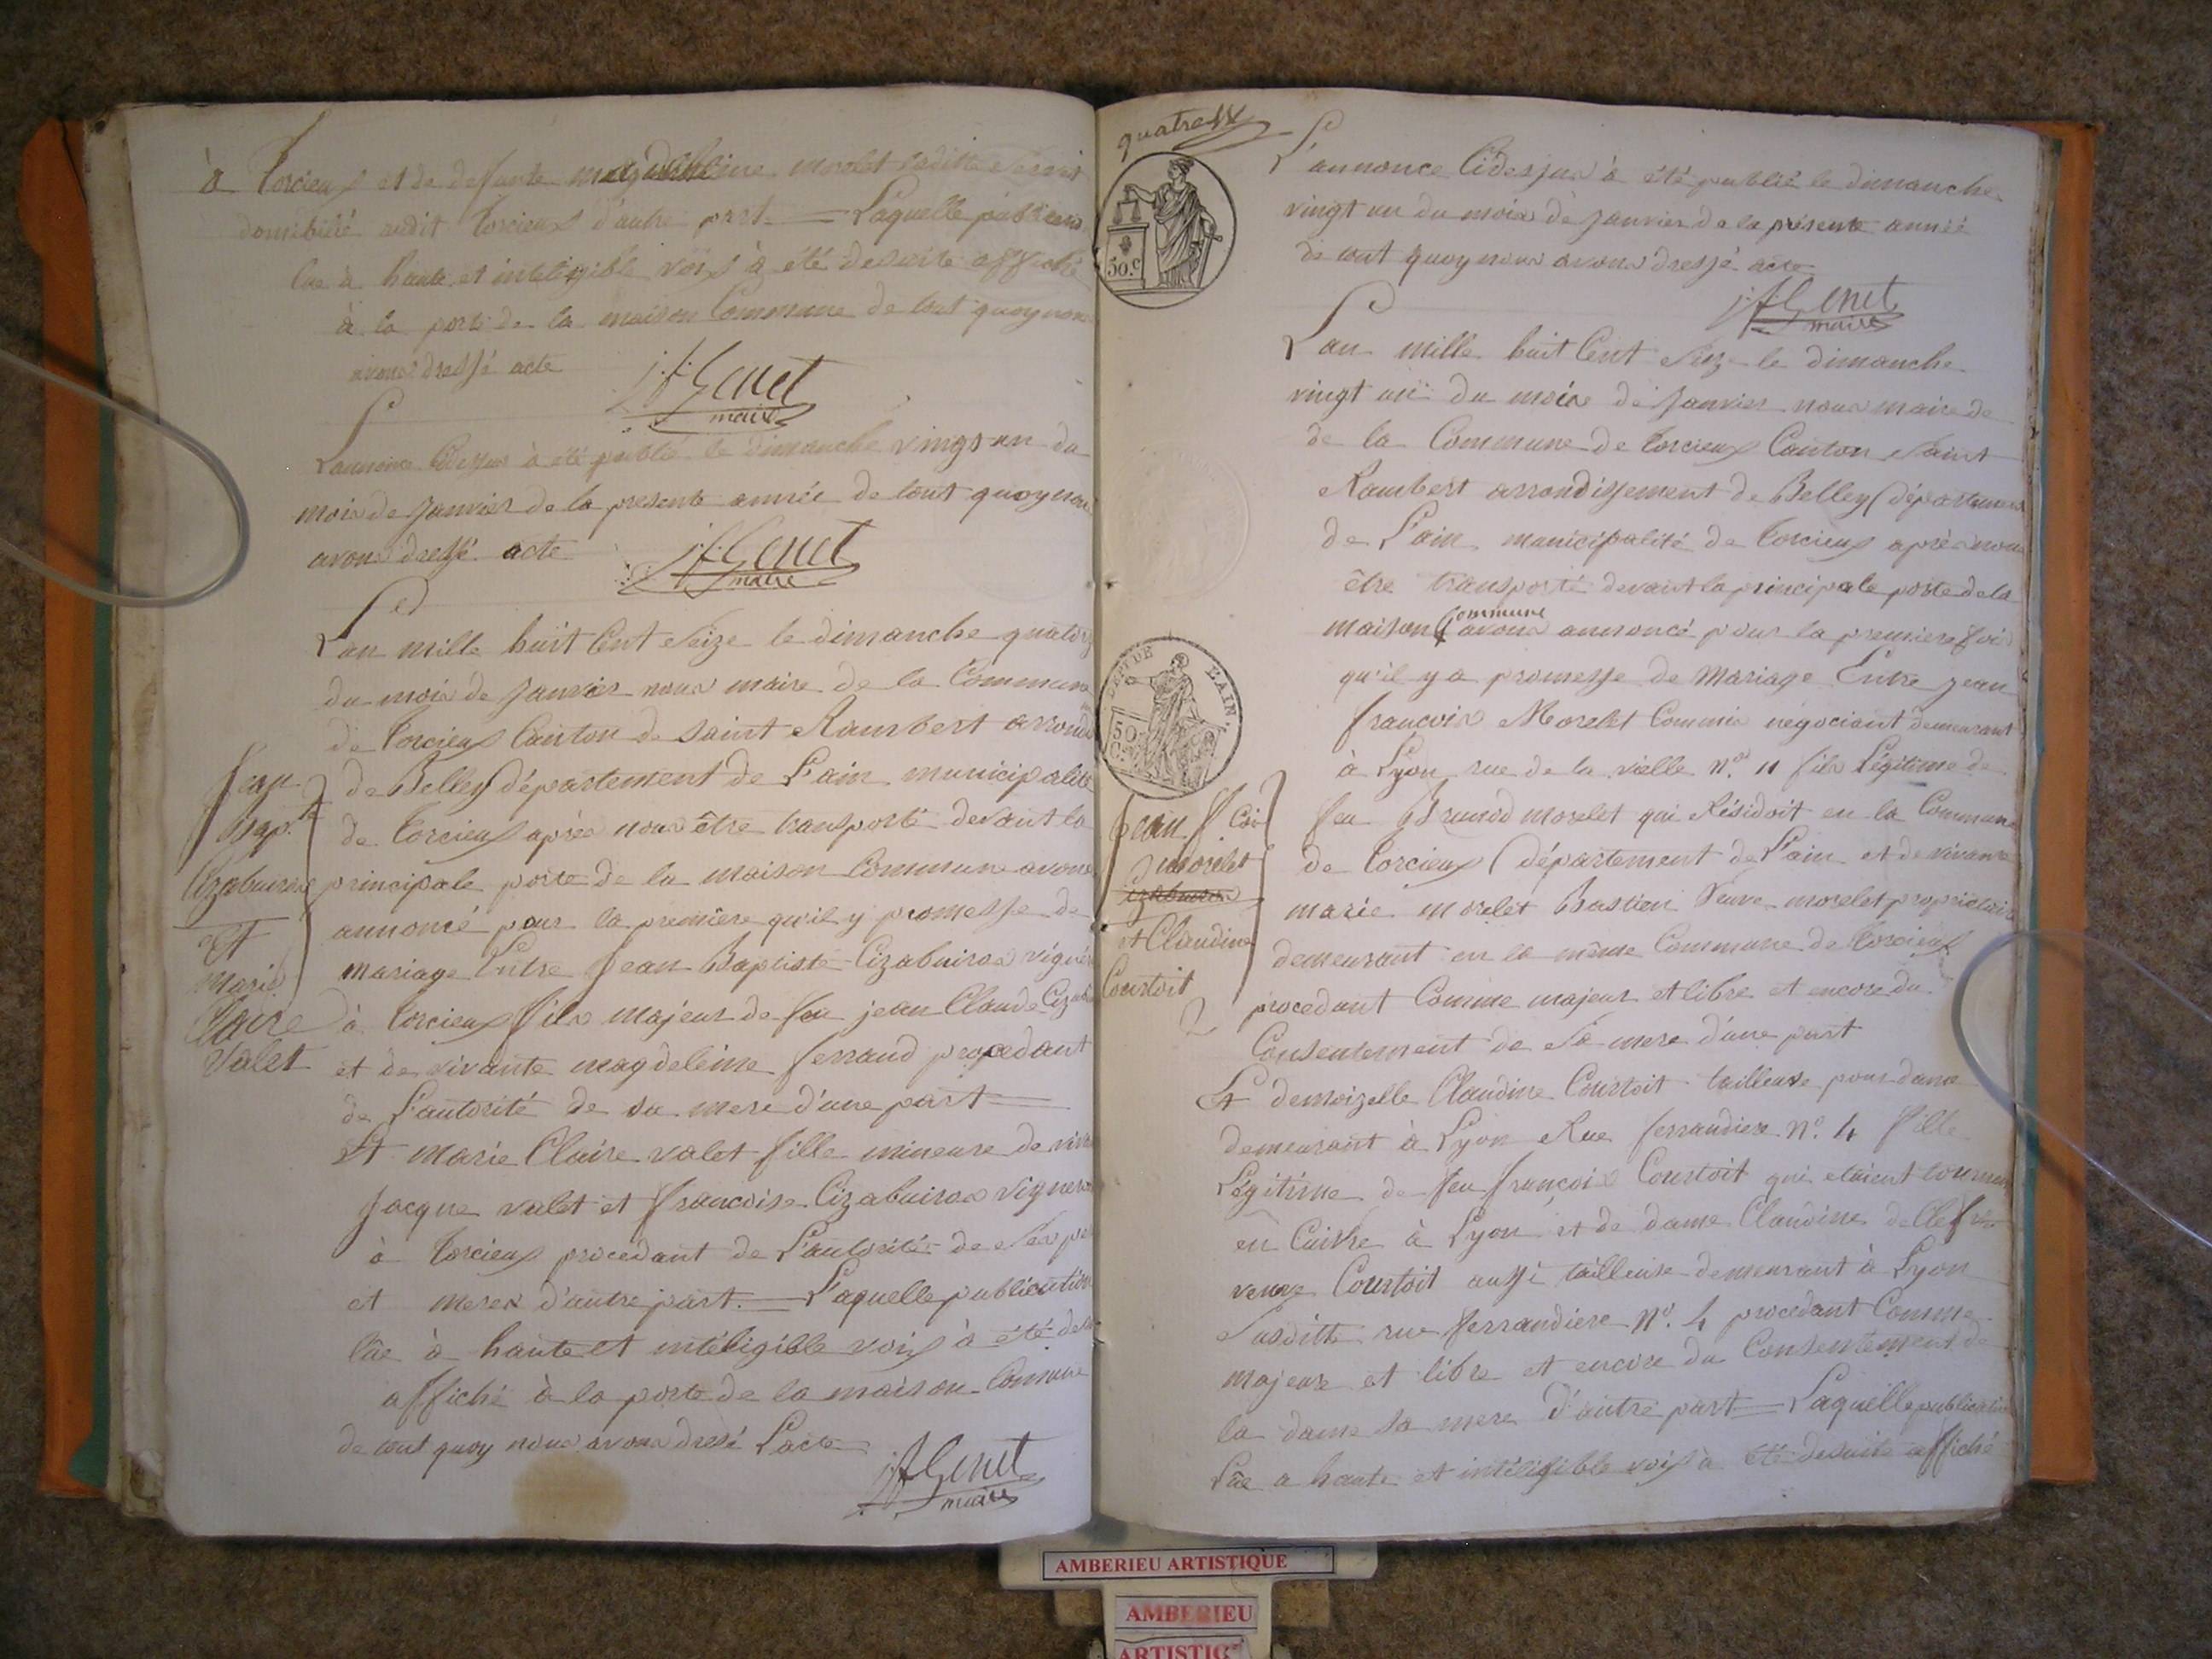 à Torcieux et de defunte magdeleine morelet
domicilié audit Torcieux d'autre part = Laquelle publication
lue à haute et inteligible voix à été desuite affiché
à la porte de la maison Commune de tout quoy nous
avons dressé acte
j f Genet
maire
L'annonce Cidessus à été publié le dimanche vingt un du
mois de janvier de la presente année de tout quoy nous
avons dressé acte
j f Genet
maire
L'an mille huit Cent Seize le dimanche quatorze
du mois de janvier nous maire de la Commune
de Torcieux Canton de saint Rambert arrond
de Belley département de L'ain municipalité
de Torcieux après nous être transporté devant la
principale porte de la maison Commune avons
annoncé pour la première qu'il y promesse de
mariage Entre Jean Baptiste Cizabuiros
à Torcieux fils majeur de feu jean Claude
et de vivante magdeleine ferrand procedant
de L'autorité de sa mere d'une part =
Et marie Claire valet fille mineure de
Jacque valet et francoise Cizabuiros vigneron
à Torcieux procedant de L'autorité de Ses
et meres d'autre part. = Laquelle publication
lûe à haute et intéligible voix à été
affiché à la porte de la maison Comune
de tout quoy nous avons dressé L'acte
j f Genet
maire
Jean
Bap.te
Cizabuiros
Et
marie
Claire
Valet
quatre
50.C
L'annonce Cidessus à été publié le dimanche
vingt un du mois de Janvier de la présente année
de tout quoy nous avons dressé acte
j f Genet
maire
L'an mille huit Cent Seize le dimanche
vingt un du mois de Janvier nous maire de
de la Commune de Torcieux Canton Saint
Rambert arrondissement de Belley département
de L'ain municipalité de Torcieux après nous
être transporté devant la principale porte de la
maison Commune avons annoncé pour la premiere fois
qu'il y a promesse de Mariage Entre jean
françois Morelet Commis négociant demeurant
à Lyon rue de la vielle N.o 11 fils Légitime de
feu morelet qui Résidoit en la Commune
de Torcieux département de L'ain et de vivante
marie morelet Bastien veuve morelet proprietaire
demeurant en la même Commune de Torcieux
procedant Comme majeur et libre et encore du
Consentement de Sa mere d'une part
Et demoizelle Claudine Courtoit tailleuse pour dame
demeurant à Lyon Rue ferrandiere N.o 4 fille
Légitime de feu françois Courtoit qui etaient tourneur
en Cuivre à Lyon et de dame Claudine
veuve Courtoit aussi tailleuse demeurant à Lyon
Susditte rue ferrandiere N.o 4 procedant Comme
majeure et libre et encore du Consentement de
la dame sa mere d'autre part = Laquelle publication
Lûe a haute et intéligible voix à été desuite affiché
50
C.
EAIN.
Jean f Cois
morelet
et Claudine
Courtoit
2
AMBERIEU ARTISTIQUE
AMBERIEU
ARTISTIQ